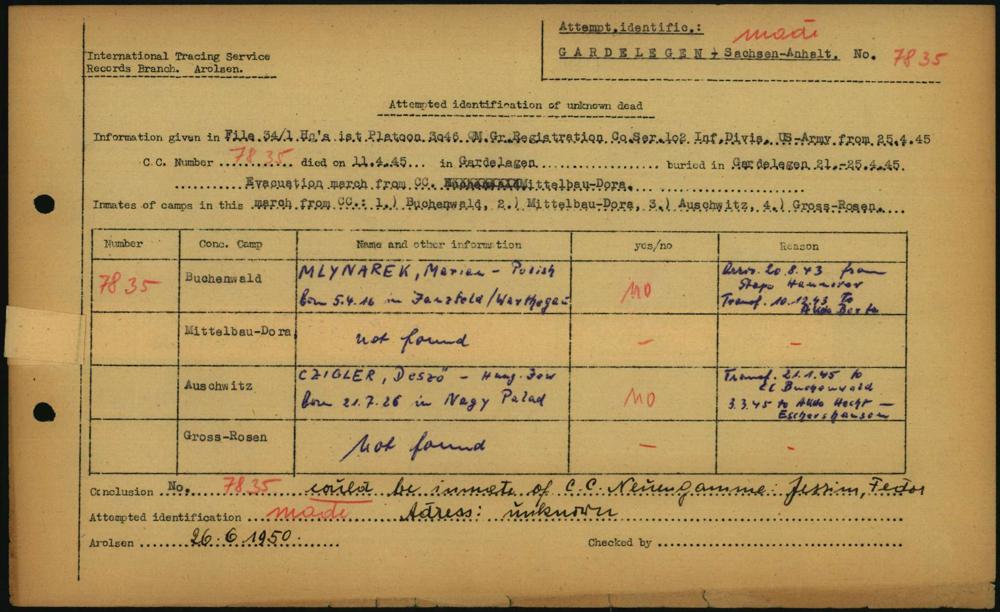 Attempt.identific.: made
GARDELEGEN - Sachsen-Anhalt. No. 7835
International Tracing Service
Records Branch. Arolsen.
Attempted identification of unknown dead
Information given in File 34/1 Hq's 1st Platoon 3046 QM.Gr.Registration Co.Ser.102 Inf.Divis. US-Army from 25.4.45
C.C. Number 7835 died on 11.4.45 in Gardelagen buried in Gardelegen 21.-25.4.45.
Evacuation march from CC. Mittelbau-Dora.
Inmates of camps in this march from CC.: 1.) Buchenwald, 2.) Mittelbau-Dora, 3.) Auschwitz, 4.) Gross-Rosen.
Number Conc. Camp Name and other information yes/no Reason
7835 Buchenwald MLYNAREK, Marian - Polish born 5.4.16 in /Warthegau no Arriv. 20.8.43 from Stapo Hannover Transf. 10.12.43 to Akdo
Mittelbau-Dora not found - -
Auschwitz CZIGLER, Deszö - Hung. Jew born 21.7.26 in Nagy Palad no Transf. 21.1.45 to CC Buchenwald 3.3.45 to Akdo Hecht - Eschershausen
Gross-Rosen not found - -
Conclusion No. 7835 could be inmate of C.C. Neuengamme: Jessim, Fedor
Attempted identification made Adress: unknown
Arolsen 26.6.1950. Checked by